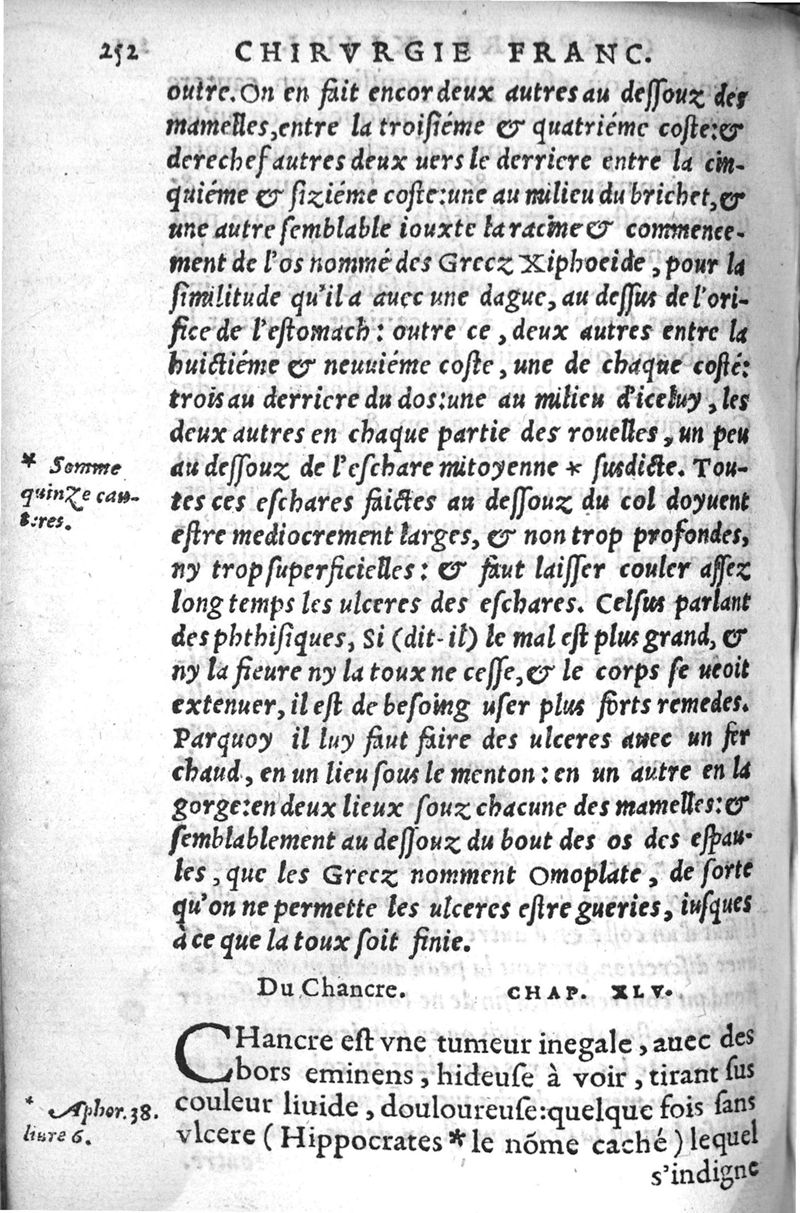 252 CHIRVRGIE FRANC.
outre. On en fait encor deux autres au dessouz des
mamelles, entre la troisiéme & quatriéme coste: &
derechef autres deux uers le derriere entre la cin-
quiéme & siziéme coste: une au milieu du brichet, &
une autre semblable iouxte la racine & commence-
ment de l'os nommé des Grecz Xiphoeide, pour la
similitude qu'il a auec une dague, au dessus de l'ori-
fice de l'estomach: outre ce, deux autres entre la
huictiéme & neuuiéme coste, une de chaque costé:
trois au derriere du dos: une au milieu d'iceluy, les
deux autres en chaque partie des rouelles, un peu
au dessouz de l'eschare mitoyenne * susdicte. Tou-
tes ces eschares faictes au dessouz du col doyuent
estre mediocrement larges, & non trop profondes,
ny trop superficielles: & faut laisser couler assez
long temps les ulceres des eschares. Celsus parlant
des phthisiques, Si (dit-il) le mal est plus grand, &
ny la fieure ny la toux ne cesse, & le corps se ueoit
extenuer, il est de besoing user plus forts remedes.
Parquoy il luy faut faire des ulceres auec un fer
chaud, en un lieu sous le menton: en un autre en la
gorge: en deux lieux souz chacune des mamelles: &
semblablement au dessouz du bout des os des espau-
les, que les Grecz nomment Omoplate, de sorte
qu'on ne permette les ulceres estre gueries, iusques
à ce que la toux soit finie.
* Somme
quinze cau-
teres.
Du Chancre. CHAP. XLV.
CHancre est vne tumeur inegale, auec des
bors eminens, hideuse à voir, tirant sus
couleur liuide, douloureuse: quelque fois sans
vlcere (Hippocrates * le nõme caché) lequel
s'indigne
* Aphor. 38.
liure 6.